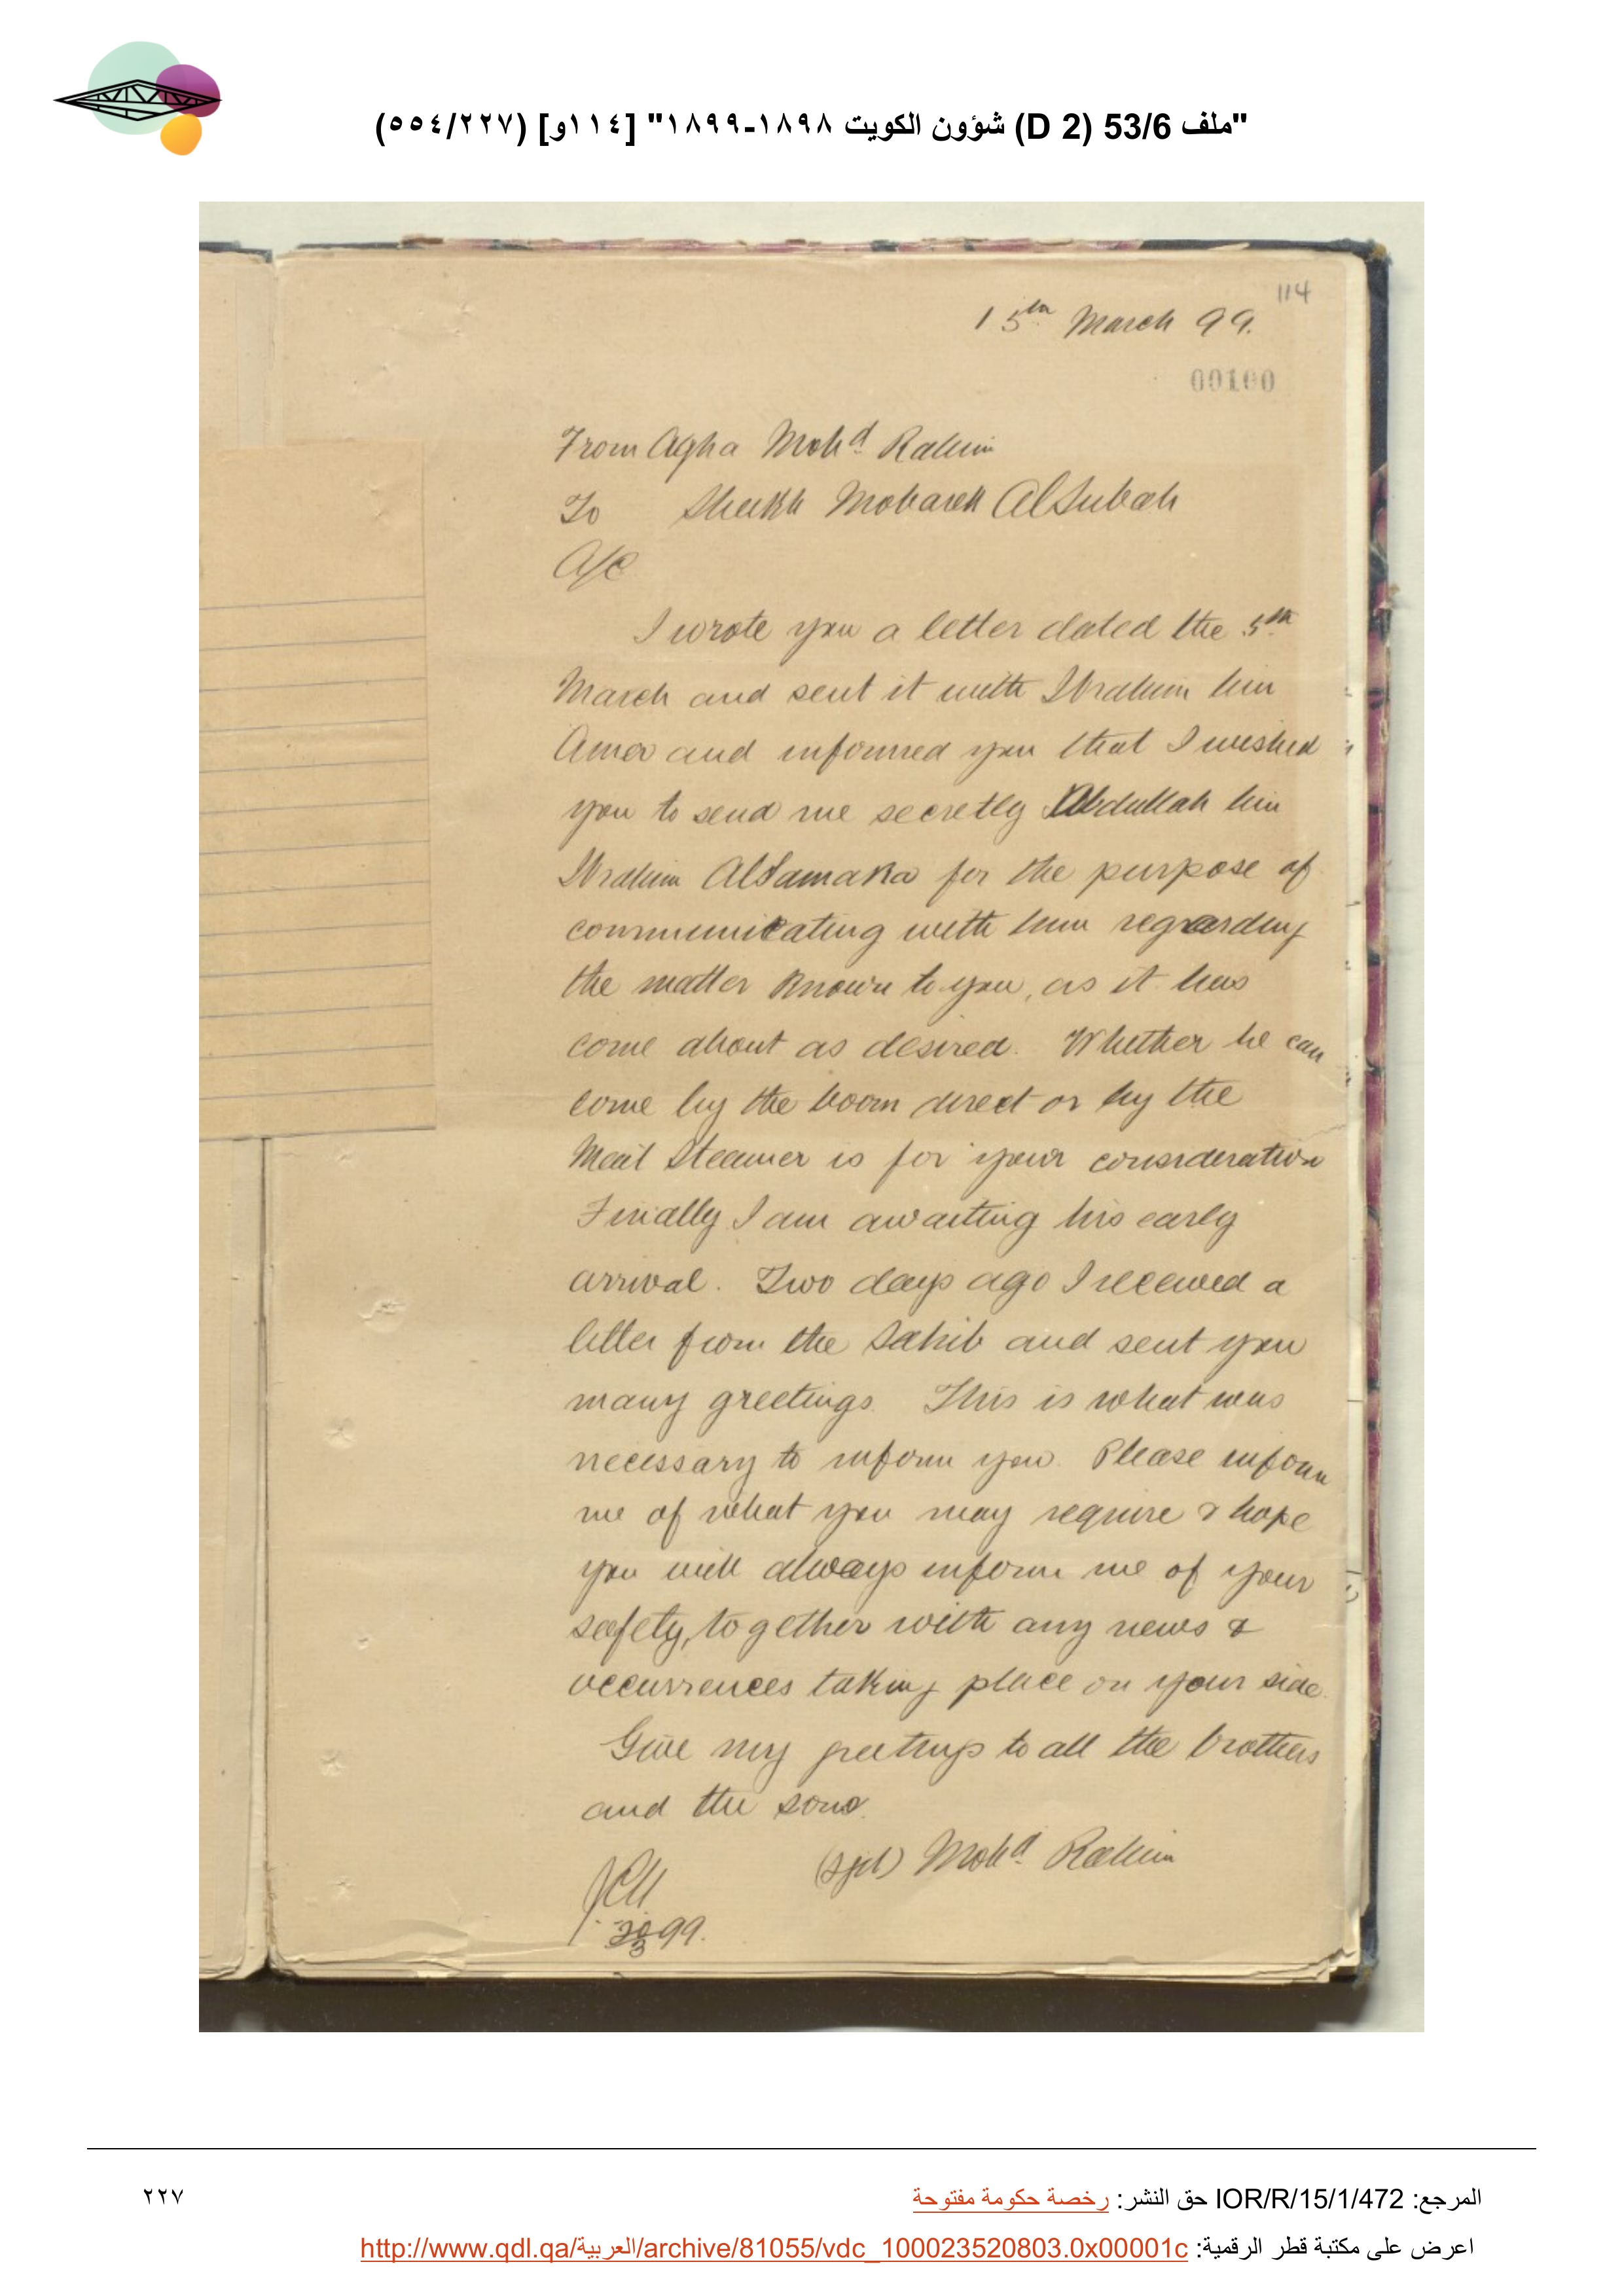 "ملف 53/6 (D 2) شؤون الكويت ١٨٩٨-١٨٩٩" [١١٤و] (٥٥٤/٢٢٧)
114
15th March 99.
00100
From Agha Mohd Rahim
To Sheikh Mobarek AlSubah
A/C
I wrote you a letter dated the 5th
March and sent it with Ibrahim bin
Amer and informed you that I wished
you to send me secretly Abdullah bin
Ibrahim AlSamaka for the purpose of
communicating with him regarding
the matter known to you, as it has
come about as desired. Whether he can
come by the boom direct or by the
Mail Steamer is for your consideration
Finally I am awaiting his early
arrival. Two days ago I received a
letter from the Sahib and sent you
many greetings. This is what was
necessary to inform you. Please inform
me of what you may require & hope
you will always inform me of your
safety, together with any news &
occurrences taking place on your side.
Give my greetings to all the brothers
and the sons.
(sgd) Mohd Rahim
99.
المرجع: IOR/R/15/1/472 حق النشر: رخصة حكومة مفتوحة
٢٢٧
اعرض على مكتبة قطر الرقمية: http://www.qdl.qa/العربية/archive/81055/vdc_100023520803.0x00001c